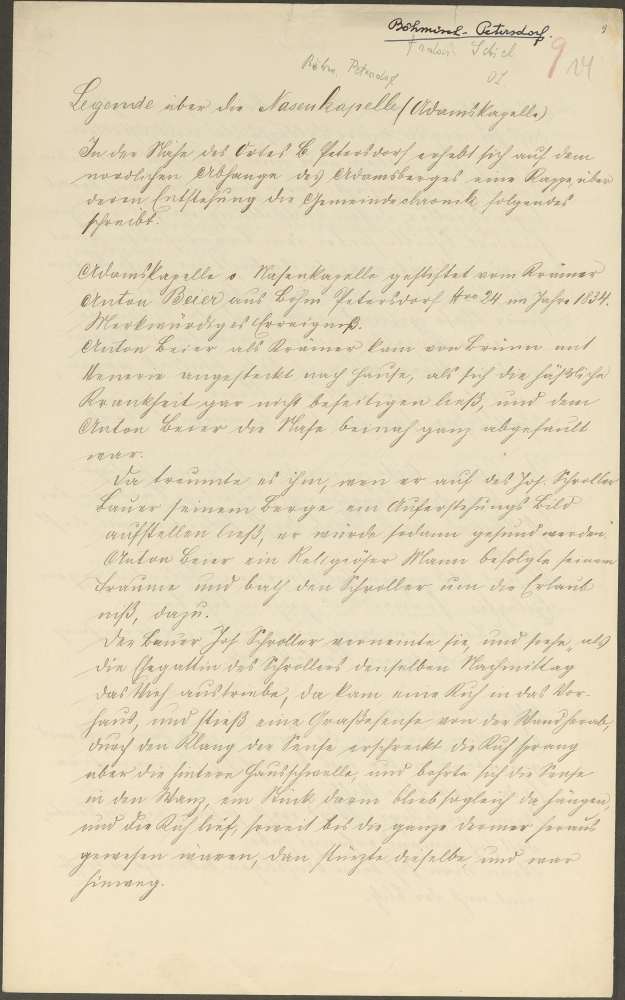 Böhmisch-Petersdorf.
9
Böhm. Petersdorf
9 14
Legende über die Nasenkapelle (Adamskapelle)
In der Nähe des Ortes B. Petersdorf erhebt sich auf dem
nördlichen Abhange des Adamsberges eine Kappe, über
deren Entstehung die Gemeindechronik folgendes
schreibt.
Adamskapelle o. Nasenkapelle gestiftet vom Krämer
Anton Beier aus Böhm Petersdorf Nro 24 im Jahre 1834.
Merkwürdiges Ereigniß.
Anton Beier als Krämer kam von Brünn mit
Venerie angesteckt nach Hause, als sich die häßliche
Krankheit gar nicht beseitigen ließ, und dem
Anton Beier die Nase beinah ganz abgefault
war.
Da treumte es ihm, wen er auf des Joh. Schroller
Bauer seinem Berge ein Auferstehungs Bild
aufstellen ließ, er würde sodann gesund werden.
Anton Beier ein Religiöser Mann befolgte seinem
Traume und bath den Schroller um die Erlaub
niß, dazu.
Der Bauer Joh Schroller verneinte sie, und siehe, als
die Ehegattin des Schrollers denselben Nachmittag
das Vieh austriebe, da kam eine Kuh in das Vor-
haus, und stieß eine Graßesense von der Wand herab,
durch den Klang der Sense erschreckt die Kuh sprang
über die hintere Hausschwelle, und bohrte sich die Sense
in den Wanz, ein Stück darm blieb sogleich da hängen,
und die Kuh lief, soweit bis die ganze dermer heraus
gewesen waren, dan stürzte dieselbe, und war
hinweg.